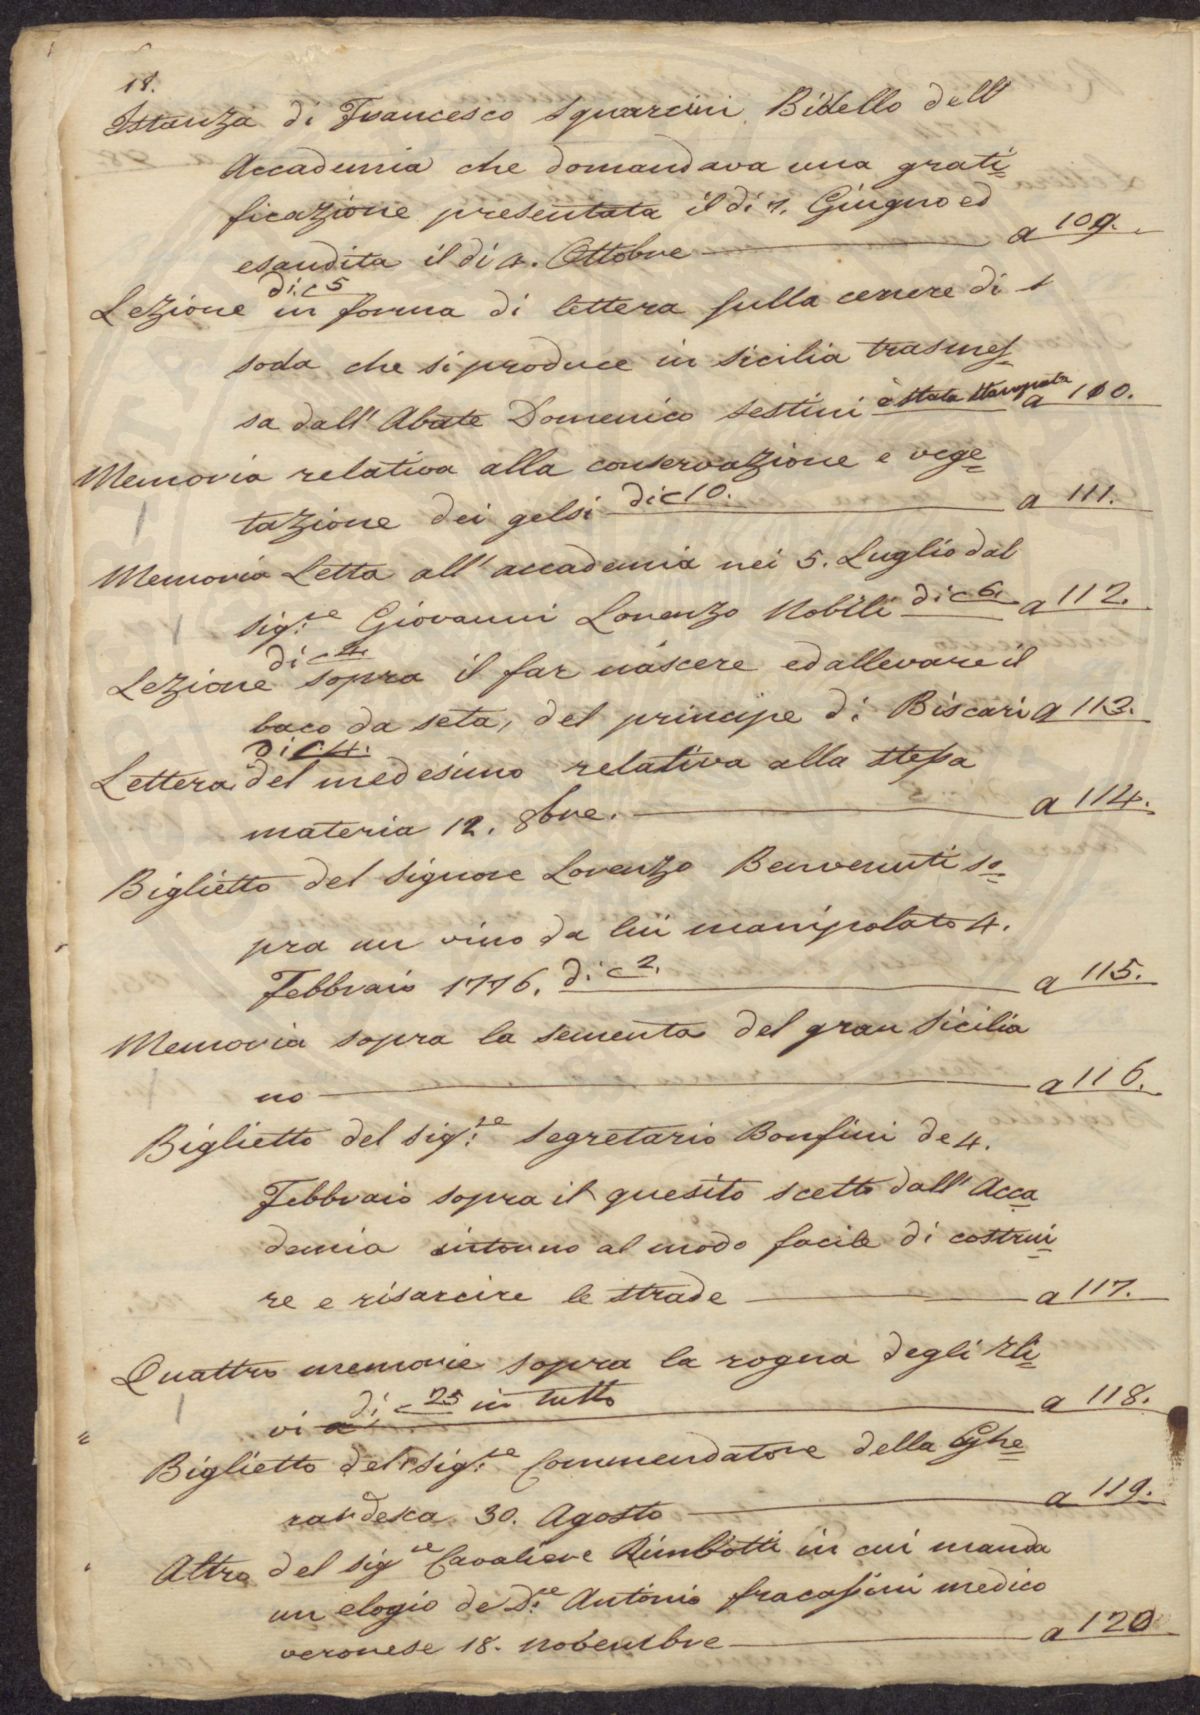 18.
Istanza di Francesco Squarcini Bidello dell'
Accademia che domandava una grati
ficazione presentata il di 1. Giugno ed
esaudita il di 4. Ottobre a 109.
di c 5
Lezione in forma di lettera sulla cenere di
soda che si produce in Sicilia trasmes
sa dall' Abate Domenico Sestini è stata stampata a 110.
Memoria relativa alla conservazione e vege
tazione dei gelsi di c 10. a 111.
Memoria Letta all' accademia nei 5. Luglio dal
sig.re Giovanni Lorenzo Nobili di c 6. a 112.
di c 4.
Lezione sopra il far nascere ed allevare il
baco da seta, del principe di Biscari a 113.
di c 4.
Lettera del medesimo relativa alla stessa
materia 12. 8bre. a 114.
Biglietto del Signore Lorenzo Benvenuti so
pra un vino da lui manipolato 4.
Febbraio 1776. di c 2. a 115.
Memoria sopra la sementa del gran Sicilia
no a 116.
Biglietto del sig.re Segretario Bonfini de 4.
Febbraio sopra il quesito scelto dall' Acca
demia intorno al modo facile di costrui
re e risarcire le strade a 117.
Quattro memorie sopra la rogna degli Uli
vi di c 25 in tutto a 118.
Biglietto del sig.re Commendatore della Ghe
rardesca 30. Agosto a 119.
Altro del sig.re Cavaliere Rimbotti in cui manda
un elogio de D.re Antonio fracassini medico
veronese 18. Novembre a 120